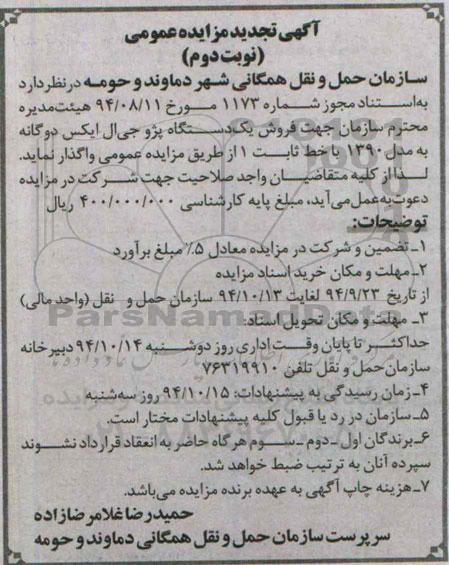 آگهی تجدید مزایده عمومی
(نوبت دوم)
سازمان حمل و نقل همگانی شهر دماوند و حومه در نظر دارد
به‌استناد مجوز شماره ۱۱۷۳ مورخ ۹۴/۰۸/۱۱ هیئت‌مدیره
محترم سازمان جهت فروش یک‌دستگاه پژو جی‌ال ایکس دوگانه
به مدل ۱۳۹۰ با خط ثابت ۱ از طریق مزایده عمومی واگذار نماید.
لذا از کلیه متقاضیان واجد صلاحیت جهت شرکت در مزایده
دعوت‌به‌عمل‌می‌آید، مبلغ پایه کارشناسی ۴۰۰/۰۰۰/۰۰۰ ریال
توضیحات:
۱ـ تضمین و شرکت در مزایده معادل ۵٪ مبلغ برآورد
۲ـ مهلت و مکان خرید اسناد مزایده
از تاریخ ۹۴/۹/۲۳ لغایت ۹۴/۱۰/۱۳ سازمان حمل و نقل (واحد مالی)
۳ـ مهلت و مکان تحویل اسناد:
حداکثر تا پایان وقت‌اداری روز دوشنبه ۹۴/۱۰/۱۴ دبیرخانه
سازمان حمل و نقل تلفن ۷۶۳۱۹۹۱۰
۴ـ زمان رسیدگی به پیشنهادات: ۹۴/۱۰/۱۵ روز سه‌شنبه
۵ـ سازمان در رد یا قبول کلیه پیشنهادات مختار است.
۶ـ برندگان اول ـ دوم ـ سوم هرگاه حاضر به انعقاد قرارداد نشوند
سپرده آنان به ترتیب ضبط خواهد شد.
۷ـ هزینه چاپ آگهی به عهده برنده مزایده می‌باشد.
حمیدرضا غلامرضازاده
سرپرست سازمان حمل و نقل همگانی دماوند و حومه
ParsNamadData